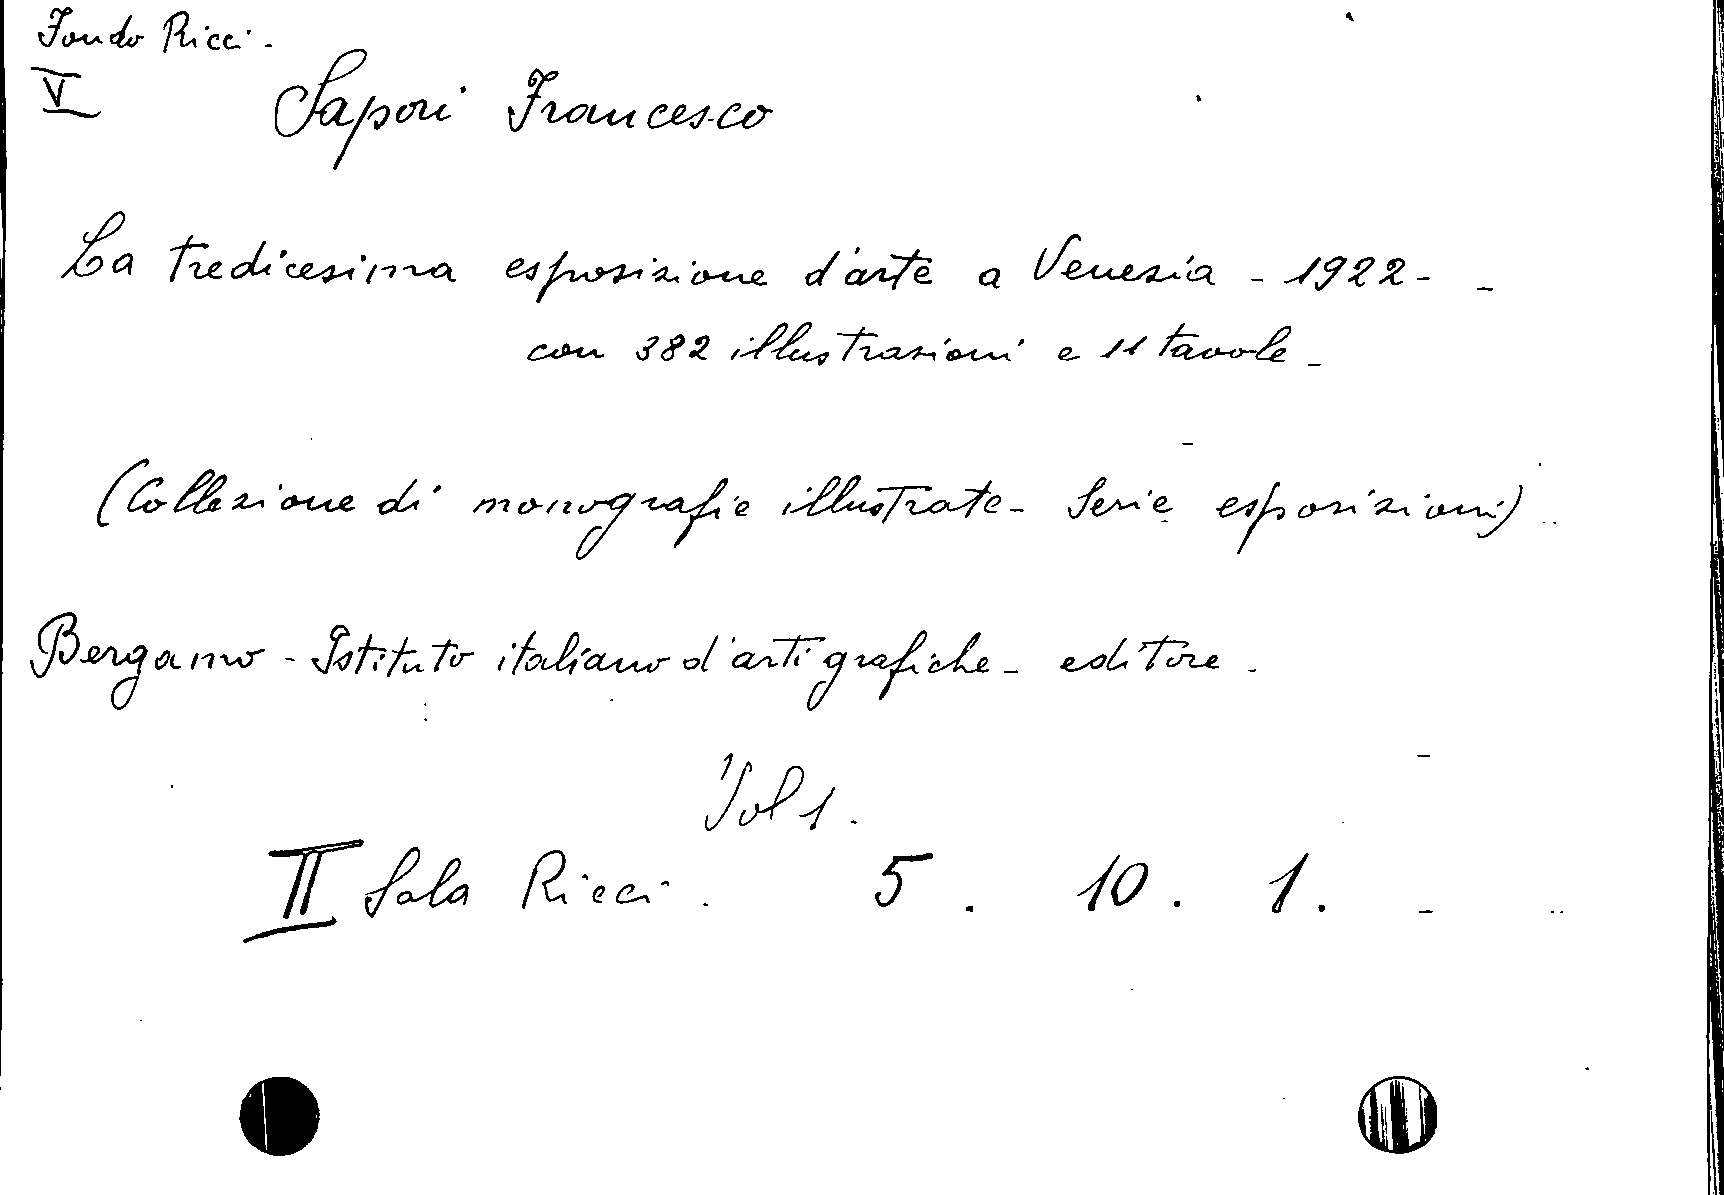 Fondo Ricci.
V Sapori Francesco
La tredicesima esposizione d'arte a Venezia - 1922 - -
con 382 illustrazioni e 11 tavole -
(Collezione di monografie illustrate - Serie esposizioni)
Bergamo - Istituto italiano d'arti grafiche - editore.
Vol 1.
II Sala Ricci. 5. 10. 1.